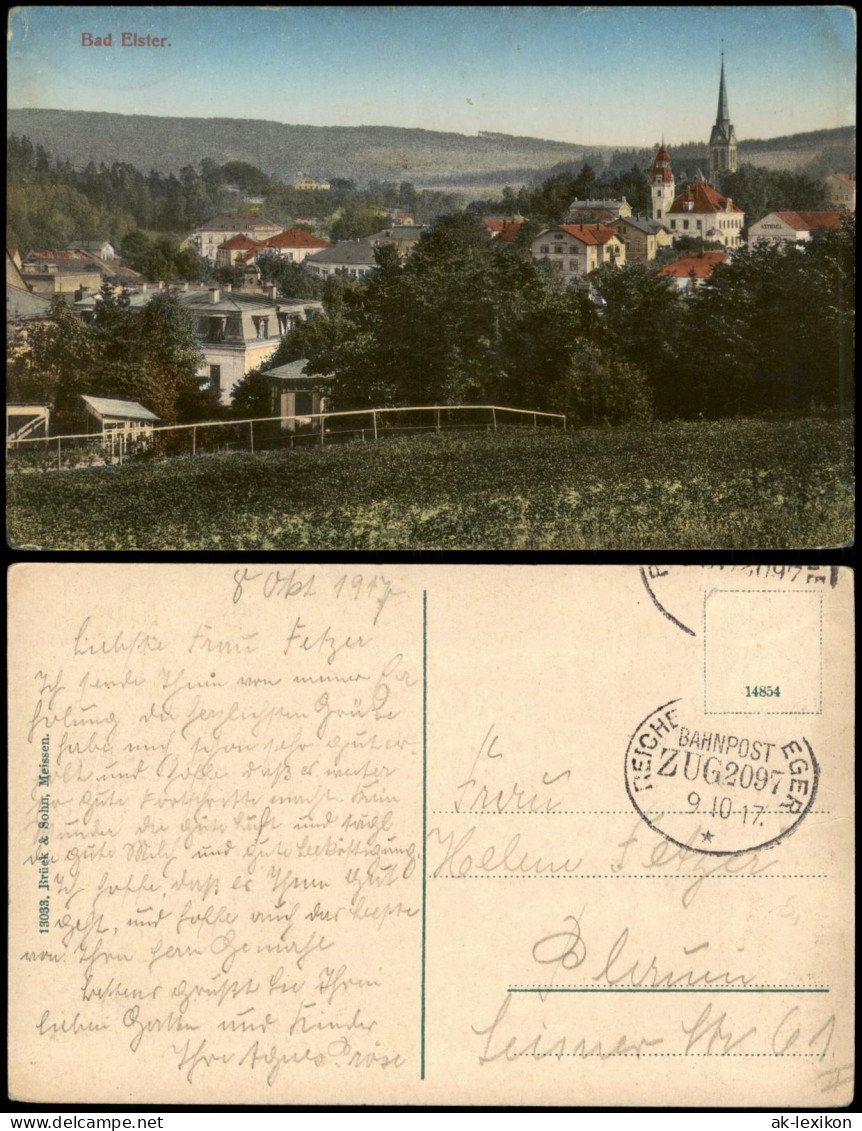 Bad Elster.
8 Okt 1917
Liebste Frau Fetzer
Ich sende Ihnen von meiner Er
holung die herzlichsten Grüße
habe mich schon sehr gut er
holt und hoffe daß es weiter
so gute Fortschritte macht. Kein
Wunder die gute Luft und tägl
die gute Milch und gute Beköstigung.
Ich hoffe, daß es Ihnen gut
geht, und hoffe auch das beste
von Ihrem Herrn Gemahl
Bestens grüßt Sie Ihren
lieben Gatten und Kinder
Ihre Agnes
13033, Brück & Sohn, Meissen.
14854
REICHE EGER
BAHNPOST
ZUG 2097
9.10.17.
Frau
Helene Fetzer
Plauen
Str 61
II
ak-lexikon.de
ak-lexikon